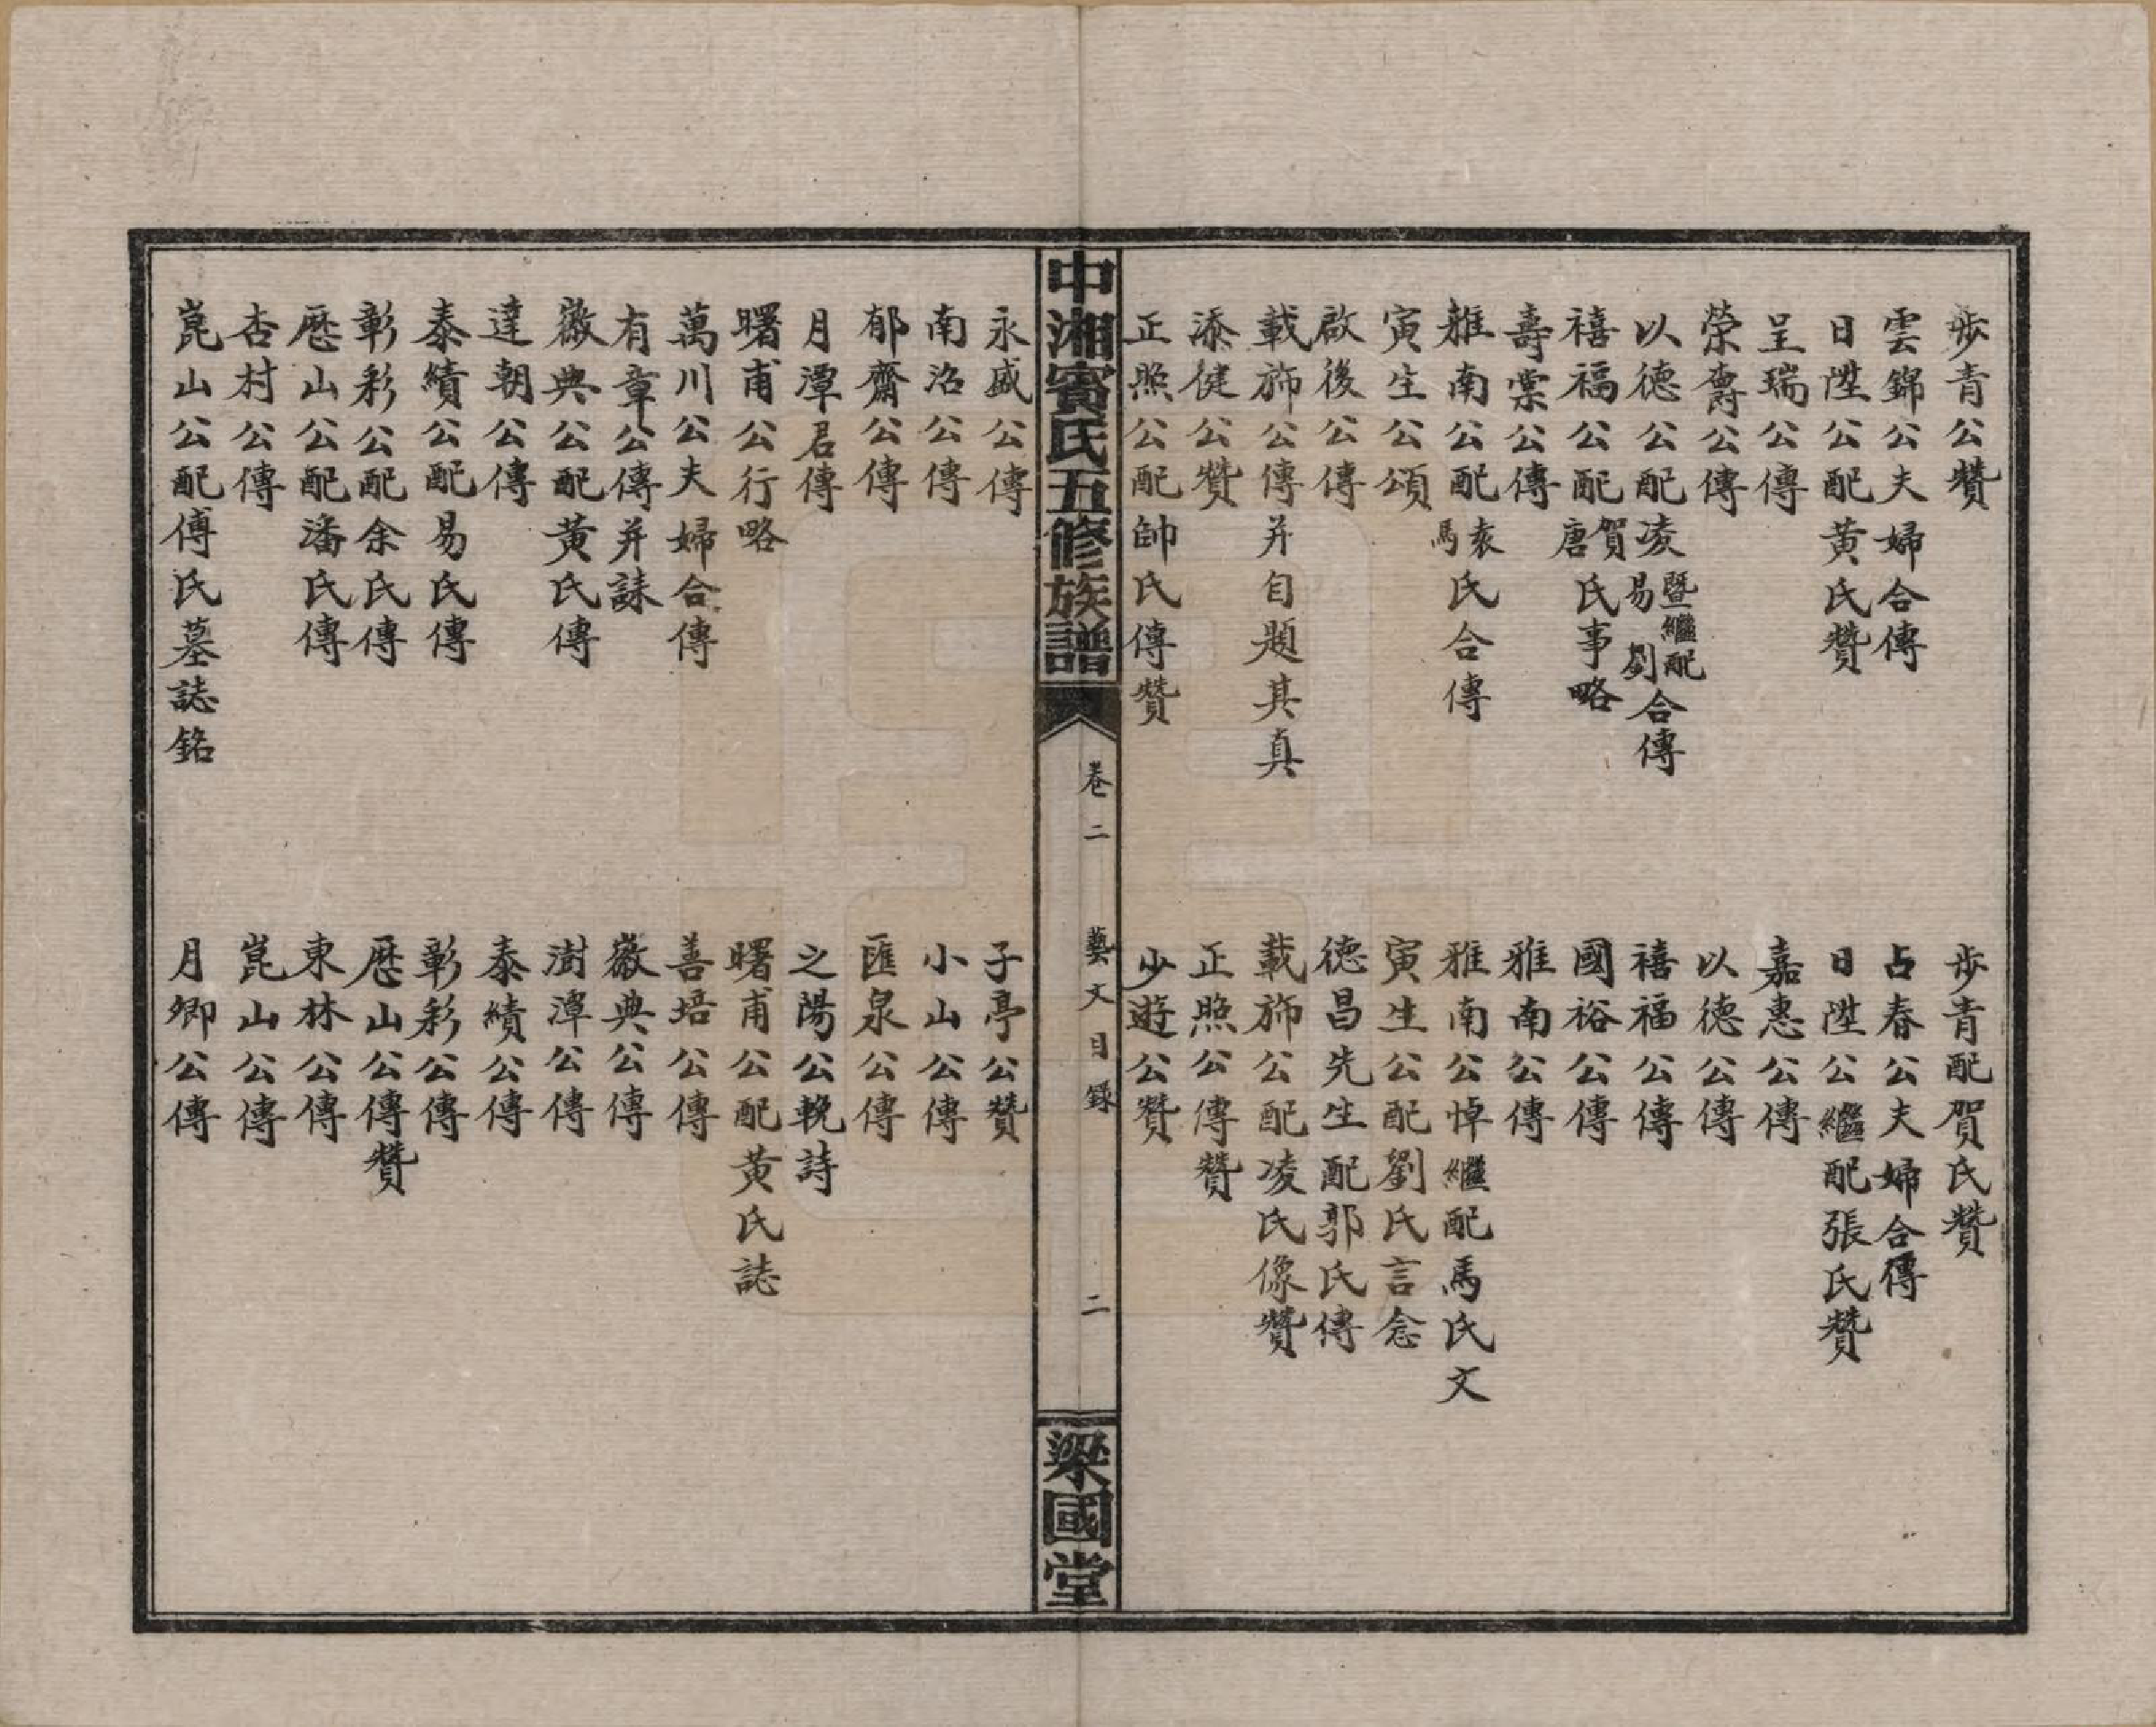 步青公贊
步青配賀氏贊
雲錦公夫婦合傳
占春公夫婦合傳
日陞公配黃氏贊
日陞公繼配張氏贊
呈瑞公傳
嘉惠公傳
榮壽公傳
以德公傳
以德公配凌暨繼配易劉合傳
禧福公傳
禧福公配賀唐氏事略
國裕公傳
壽棠公傳
雅南公傳
雅南公配袁馬氏合傳
雅南公悼繼配馬氏文
寅生公頌
寅生公配劉氏言念
啟後公傳
德昌先生配郭氏傳
載斾公傳并自題其真
載斾公配凌氏像贊
添健公贊
正照公傳贊
正照公配帥氏傳贊
少遊公贊
中湘賓氏五修族譜
卷二
藝文目錄
二
梁國堂
永盛公傳
子亭公贊
南治公傳
小山公傳
郁齋公傳
匯泉公傳
月潭君傳
之陽公輓詩
曙甫公行略
曙甫公配黃氏誌
萬川公夫婦合傳
善培公傳
有章公傳并誄
徽典公傳
徽典公配黃氏傳
澍潭公傳
達朝公傳
泰績公傳
泰績公配易氏傳
彰彩公傳
彰彩公配余氏傳
歷山公傳贊
歷山公配潘氏傳
東林公傳
杏村公傳
崑山公傳
崑山公配傅氏墓誌銘
月卿公傳